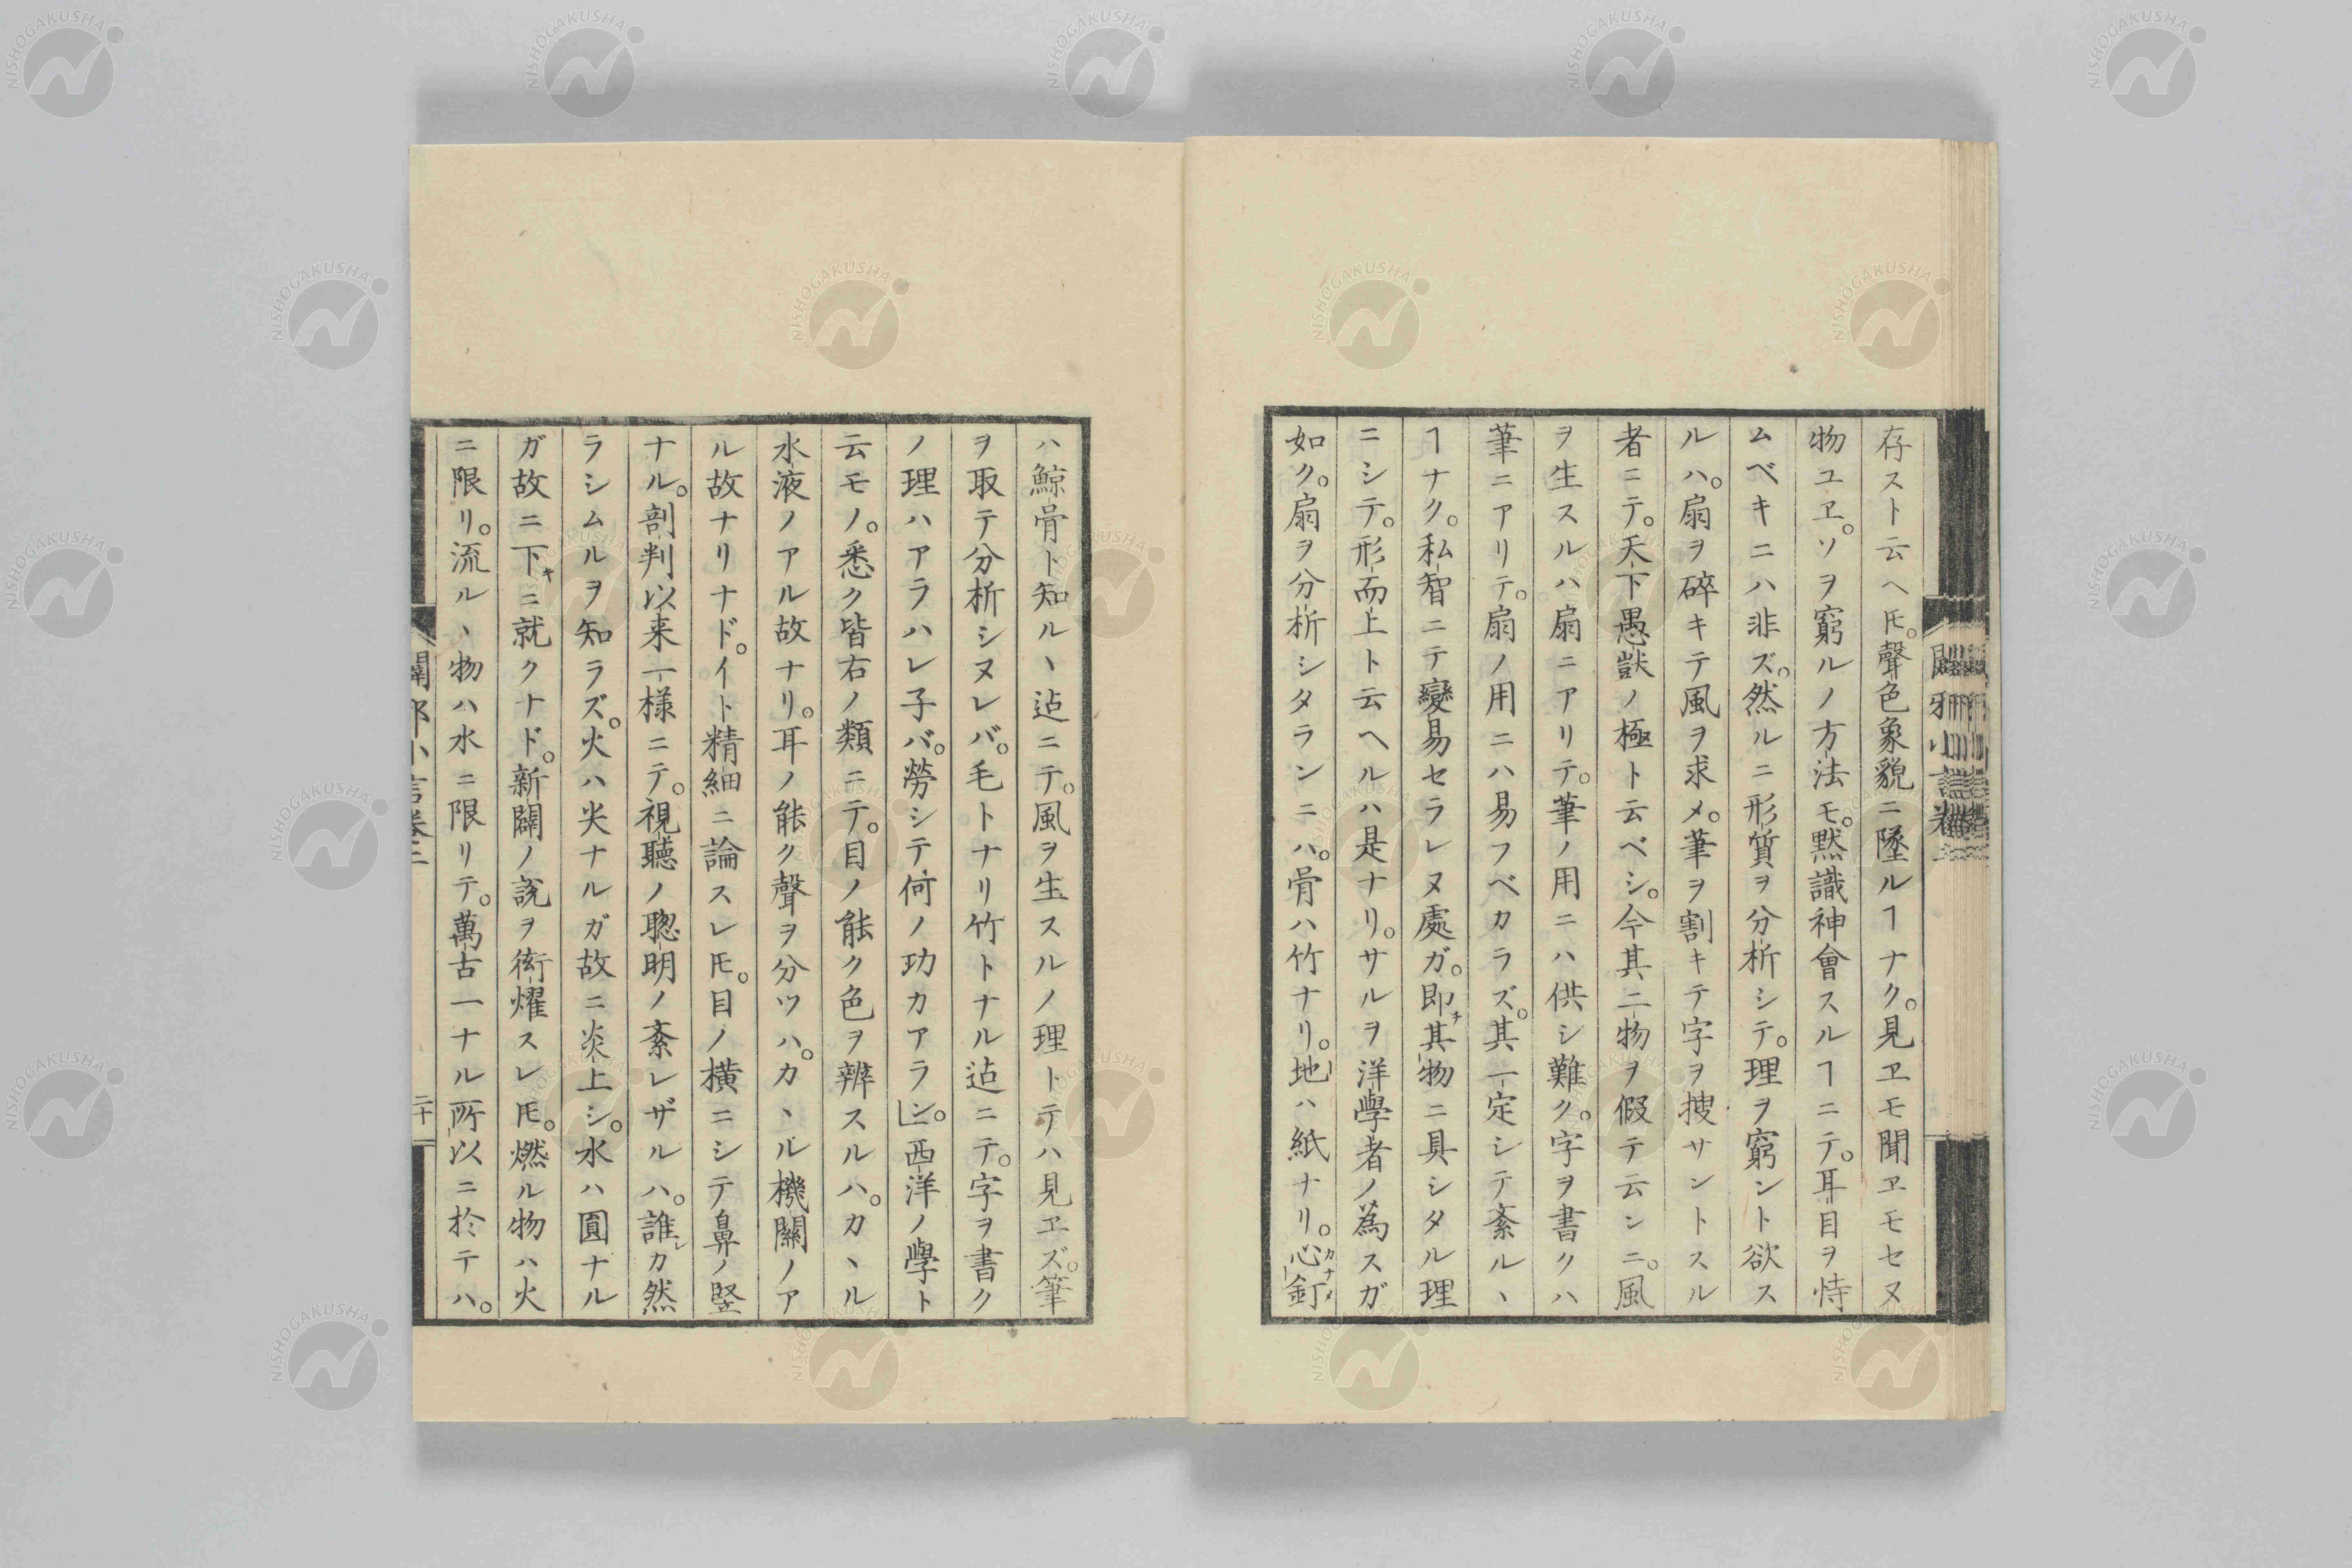 存スト云ヘ𪜈。聲色象貌ニ墜ルヿナク。見ヱモ聞ヱモセヌ
物ユヱ。ソヲ窮ルノ方法モ。黙識神會スルヿニテ。耳目ヲ恃
ムベキニハ非ズ。然ルニ形質ヲ分析シテ。理ヲ窮ント欲ス
ルハ。扇ヲ碎キテ風ヲ求メ。筆ヲ割キテ字ヲ捜サントスル
者ニテ。天下愚獃ノ極ト云ベシ。今其二物ヲ假テ云ンニ。風
ヲ生スルハ扇ニアリテ。筆ノ用ニハ供シ難ク。字ヲ書クハ
筆ニアリテ。扇ノ用ニハ易フベカラズ。其一定シテ紊ルヽ
ヿナク。私智ニテ變易セラレヌ處ガ。即チ其物ニ具シタル理
ニシテ。形而上ト云ヘルハ是ナリ。サルヲ洋學者ノ為スガ
如ク。扇ヲ分析シタランニハ。骨ハ竹ナリ。地ハ紙ナリ。心釘カナメ
ハ鯨骨ト知ルヽ迠ニテ。風ヲ生スルノ理トテハ見ヱズ。筆
ヲ取テ分析シヌレバ。毛トナリ竹トナル迠ニテ。字ヲ書ク
ノ理ハアラハレ子バ。勞シテ何ノ功カアラン。」西洋ノ學ト
云モノ。悉ク皆右ノ類ニテ。目ノ能ク色ヲ辨スルハ。カヽル
水液ノアル故ナリ。耳ノ能ク聲ヲ分ツハ。カヽル機關ノア
ル故ナリナド。イト精細ニ論スレ𪜈。目ノ横ニシテ鼻ノ竪
ナル。剖判以来一様ニテ。視聽ノ聰明ノ紊レザルハ。誰レカ然
ラシムルヲ知ラズ。火ハ尖ナルガ故ニ炎上シ。水ハ圓ナル
ガ故ニ下キニ就クナド。新闢ノ説ヲ衒燿スレ𪜈。燃ル物ハ火
ニ限リ。流ルヽ物ハ水ニ限リテ。萬古一ナル所以ニ於テハ。
闢邪小言卷二
二十